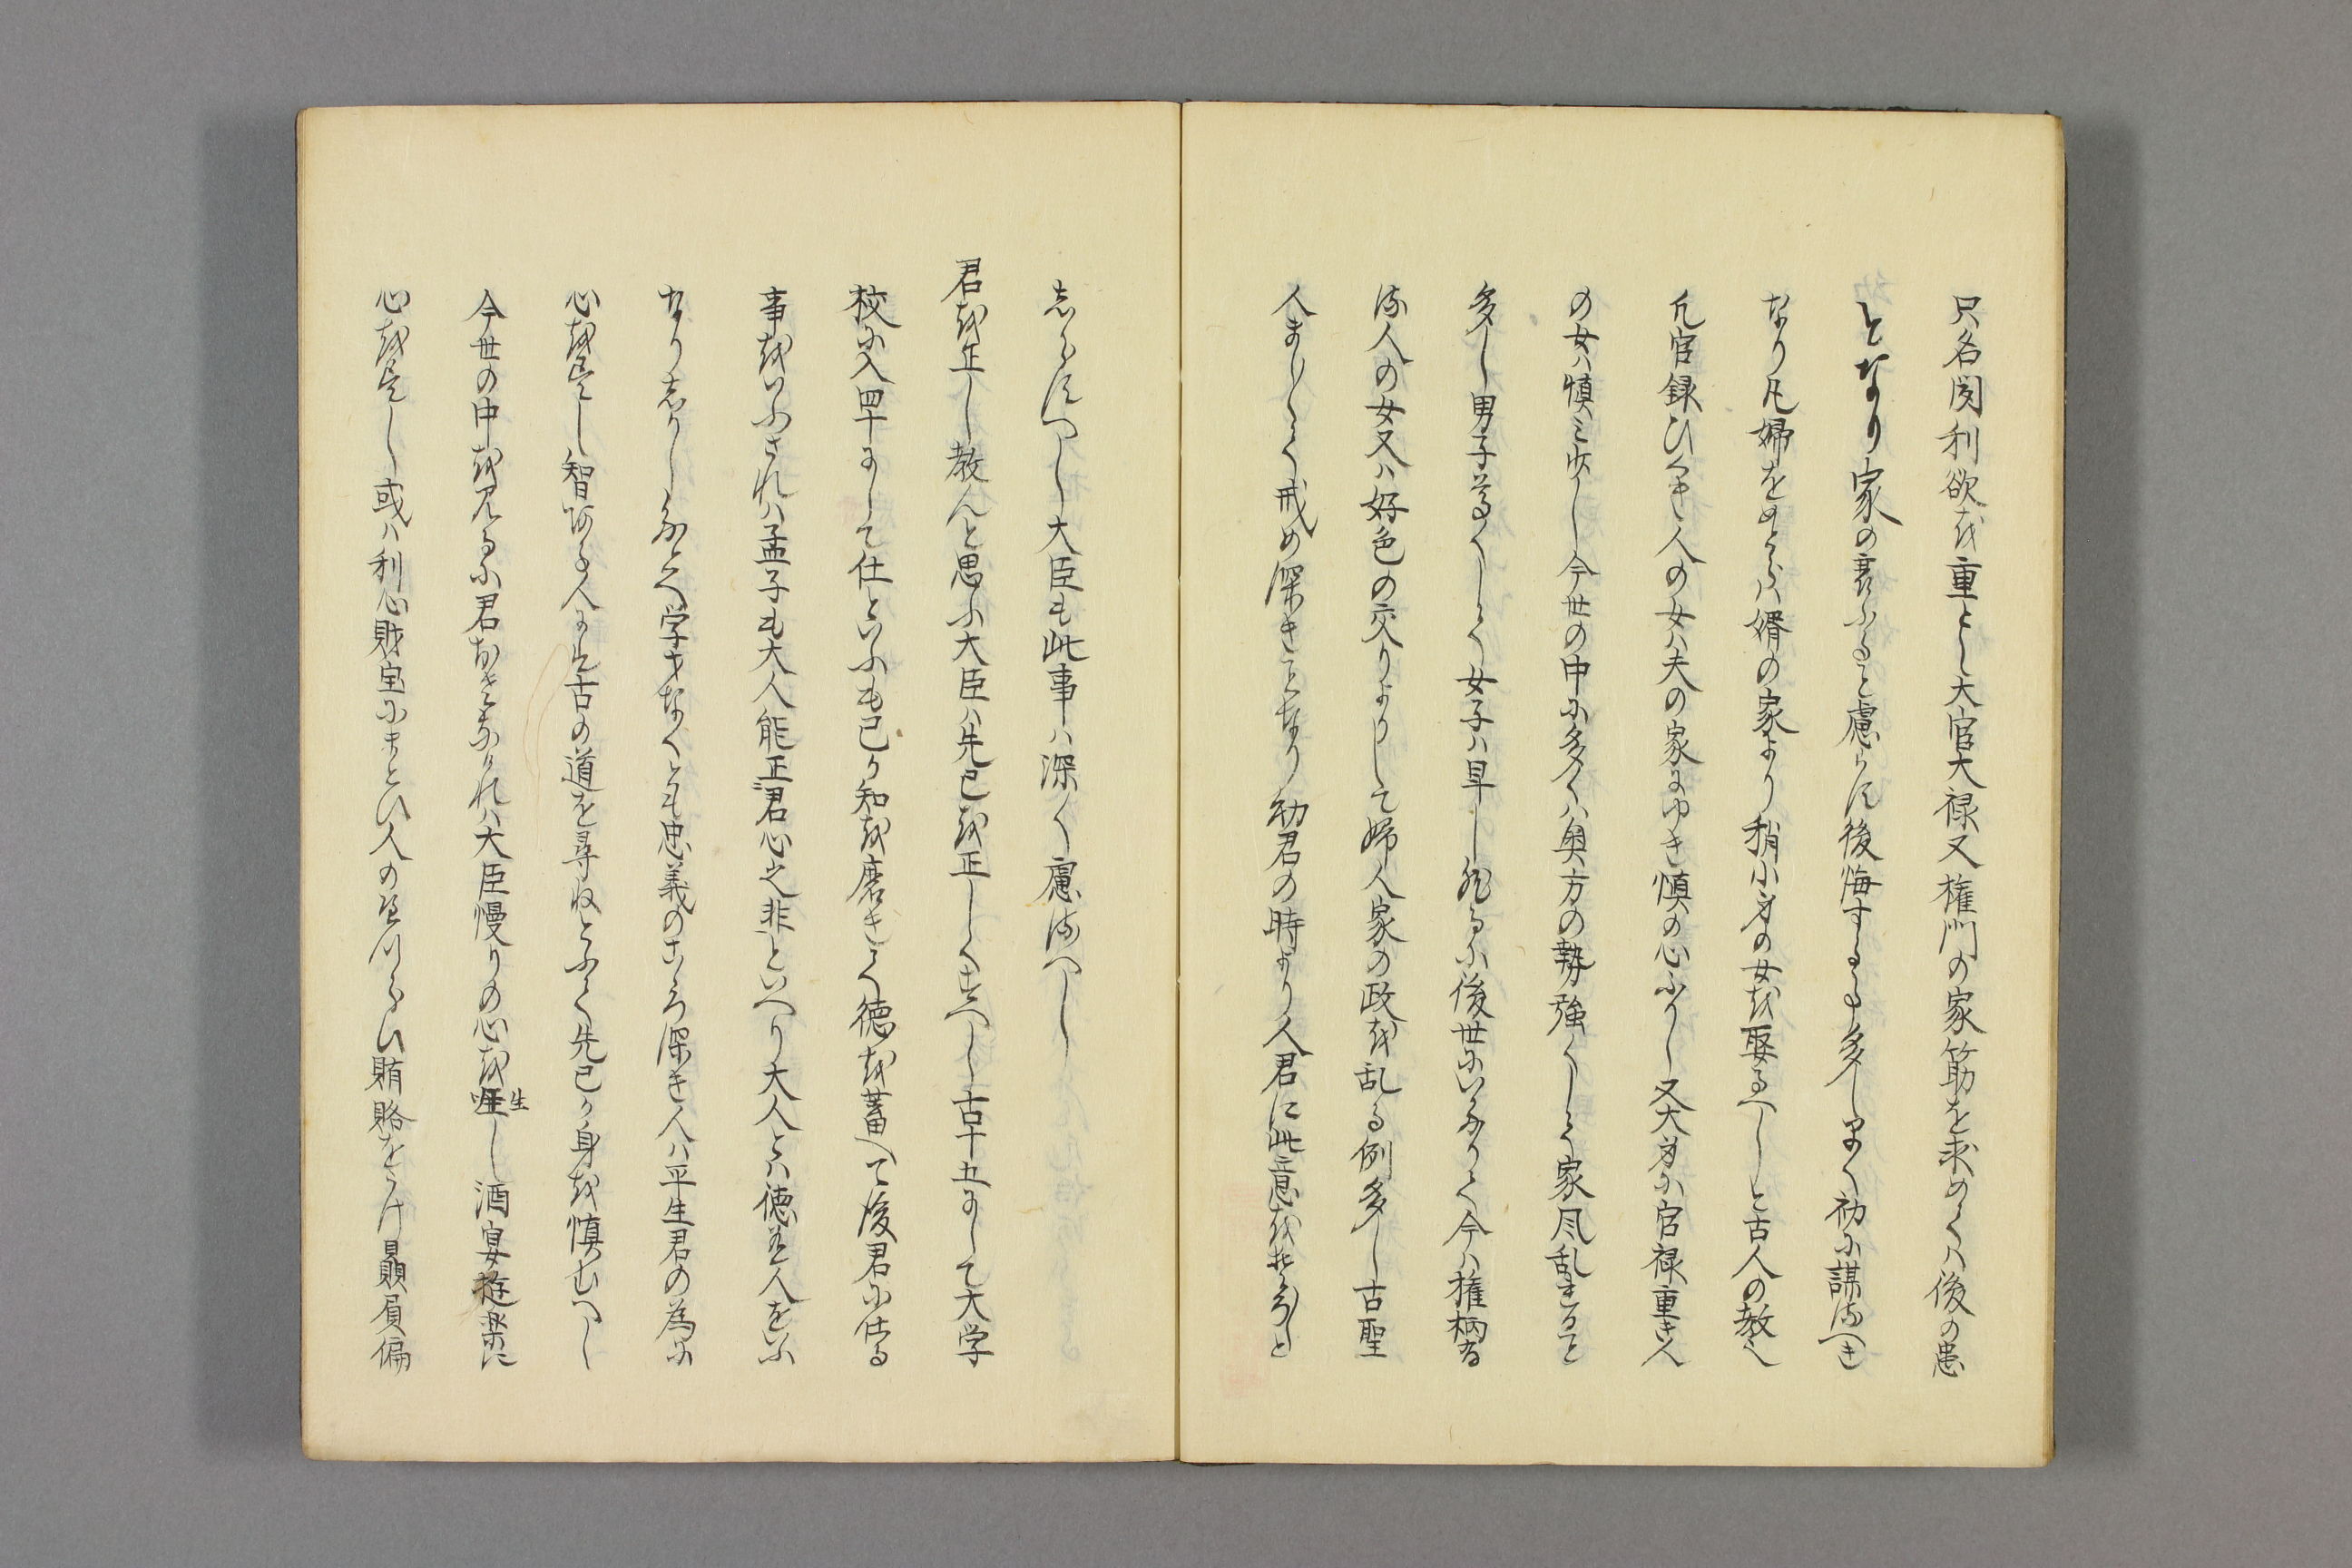 只名閥利欲を重とし大官大禄又権門の家筋を求めくハ後の患
となり家の衰ふると慮らす後悔する事多し早く初に謀るへき
なり凡婦をめとらハ婿の家より稍小身の女を娶るへしと古人の教へ
凡官録ひくき人の女ハ夫の家にゆき慎の心ふかし又大身に官禄重き人
の女ハ慎ミ少しし今世の中に多くハ奥方の勢強くして家風乱きると
多し男子尊くして女子ハ早し然るに後世にいたりて今ハ権柄有
る人の女又ハ好色の交りよりして婦人家の政を乱る例多し古聖
人ましまして戒め深きことなり幼君の時より人君に此意をおろと
しらすへし大臣も此事ハ深く慮るへし
君を正し教んと思ふ大臣ハ先己を正しくすへし古十五にして大学
校に入四十にして仕といふも己か知を磨きて徳を蓄へて後君に仕る
事をいふされハ孟子も大人能正君心之非といへり大人とハ徳有人をいふ
なりしかしたとへ学才なくとも忠義のこころ深き人ハ平生君の為に
心を尽し智ある人にも古の道を尋ねとふて先己か身を慎むへし
今世の中を見るに君おさなけれハ大臣慢りの心を生し酒宴遊楽に
心を尽し或ハ利心財宝にまとひ人のへつらひ賄賂をうけ贔屓偏